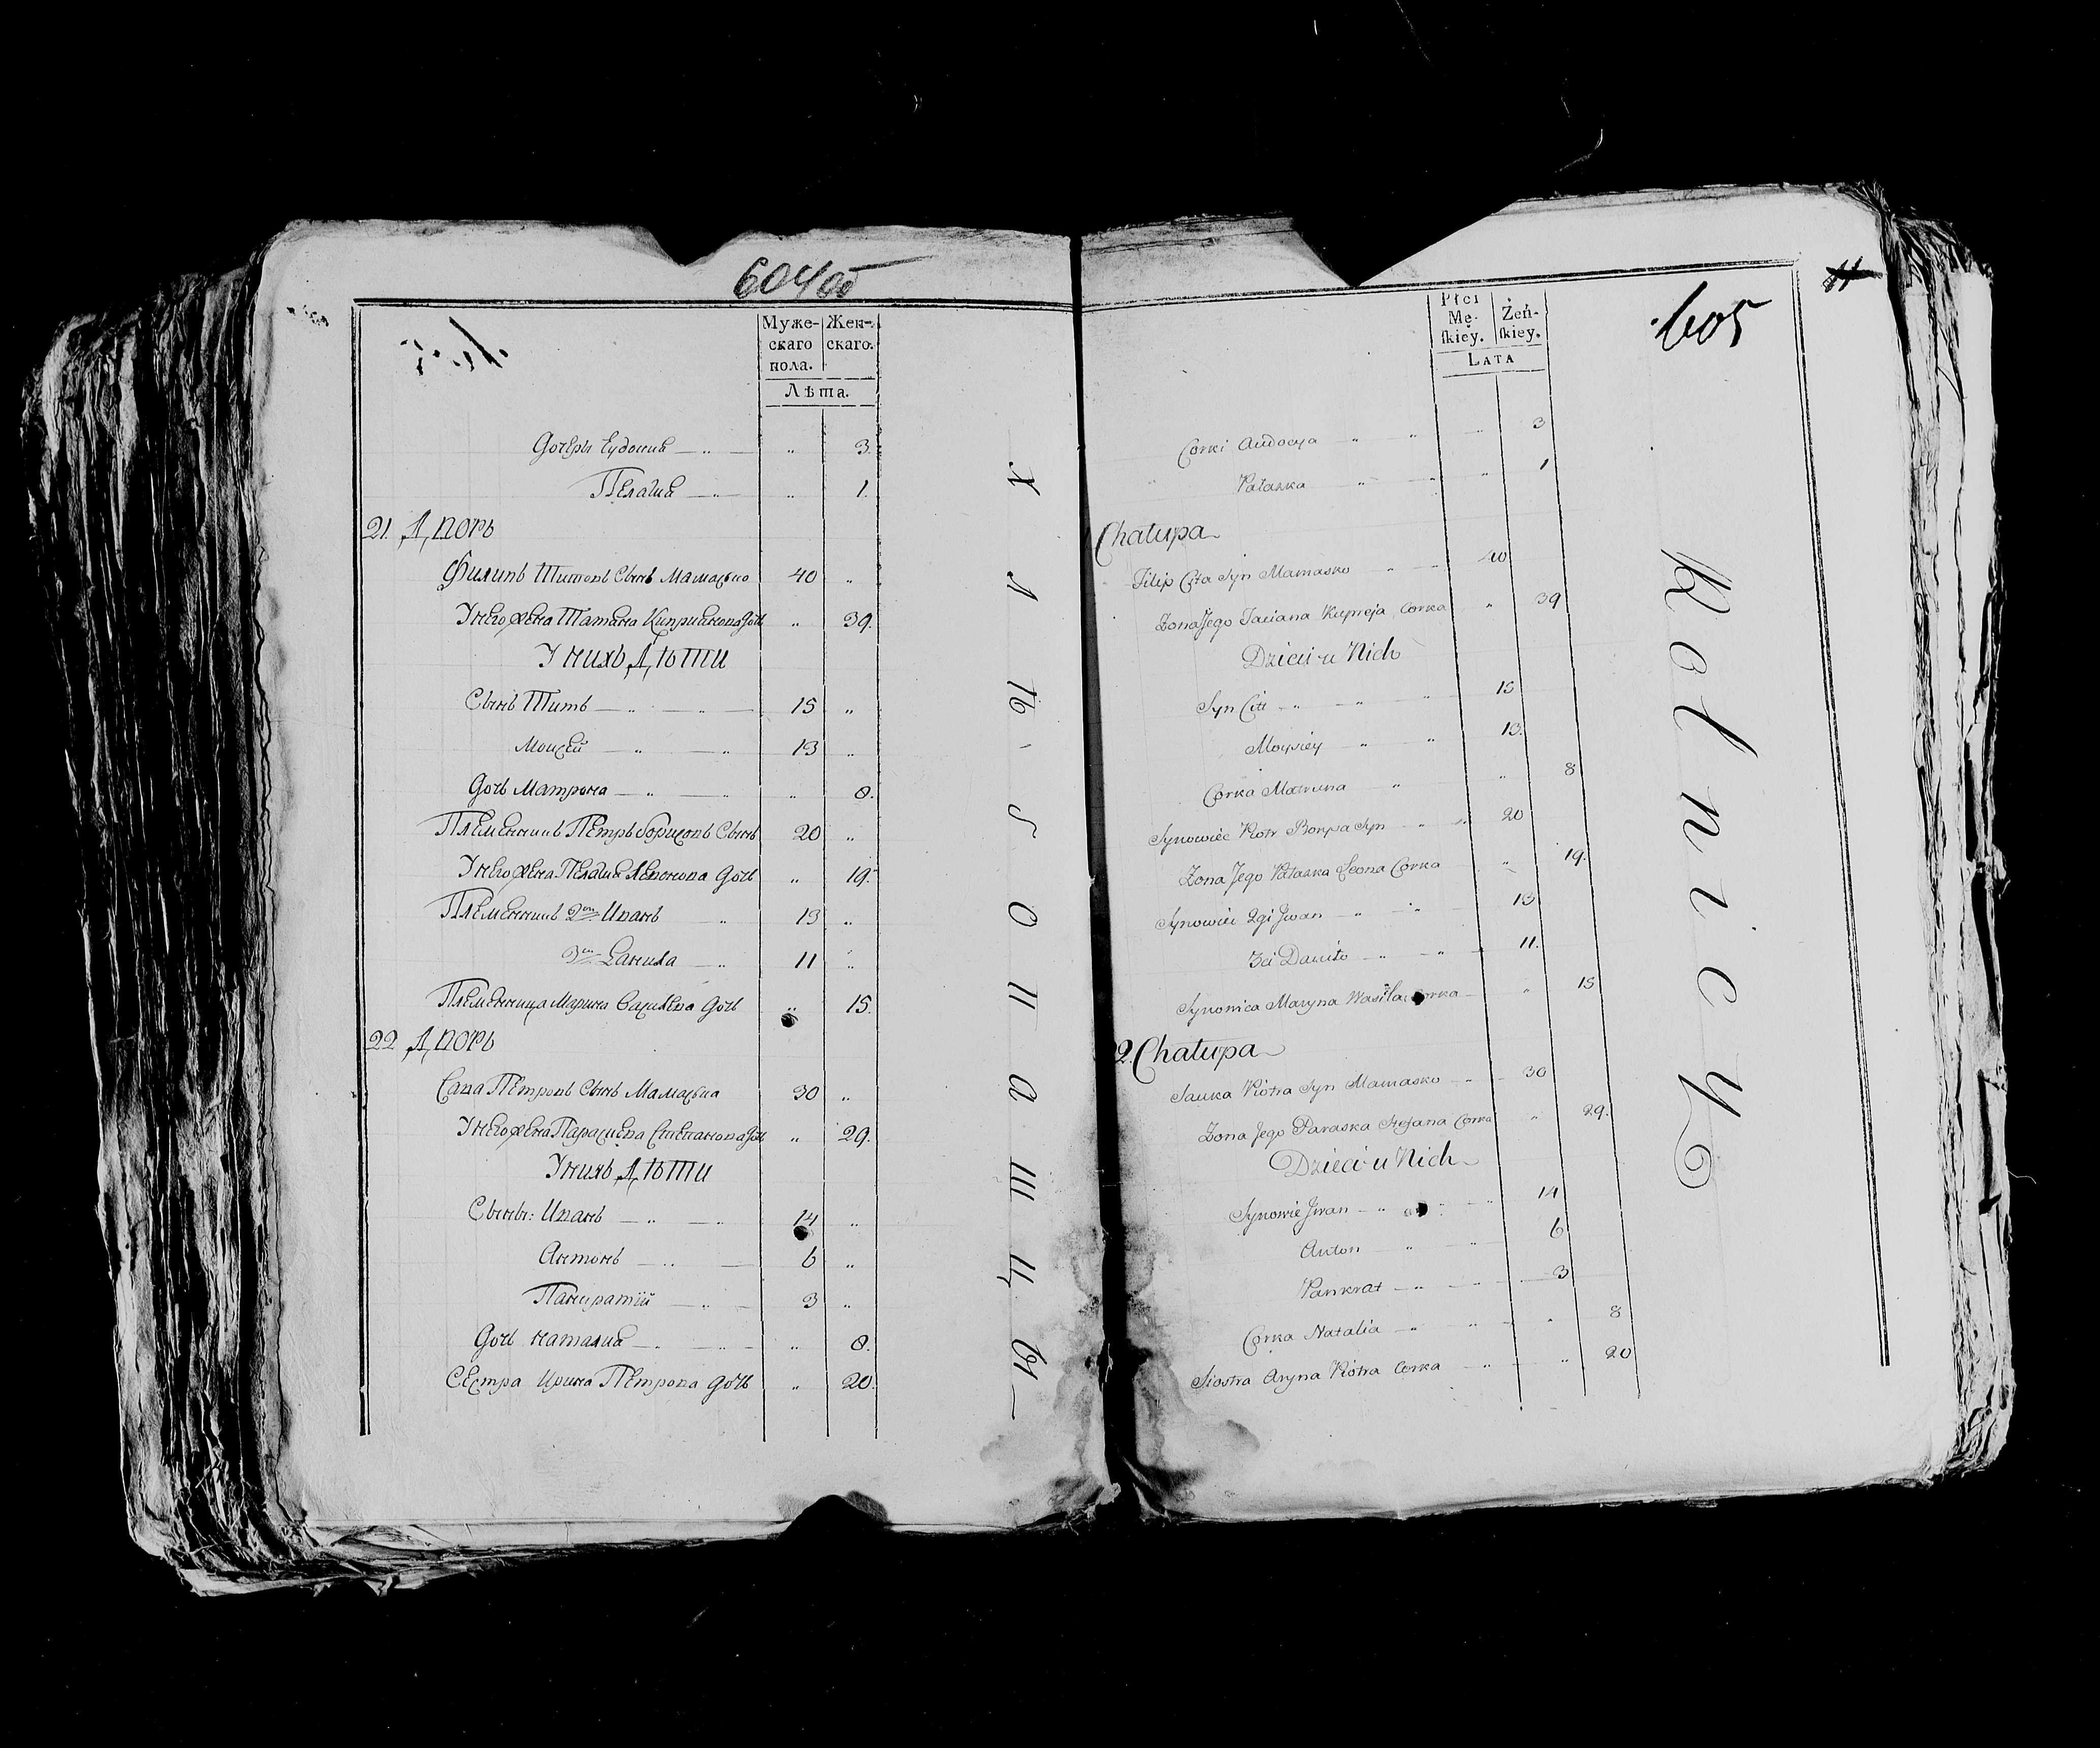 604 об
Муже-
скаго
пола.
Жен-
скаго.
Лѣта.
Дочери Евдокия 3.
Пелагия 1.
21. Дворъ
Филипъ Титовъ Сынъ Мамасько 40
У него жена Татяна Киприянова дочь 39.
У нихъ Дѣти
Сынъ Титъ 15
Моисей 13
Дочь Матрона 8.
Племянникъ Петръ Борисовъ Сынъ 20
У него жена Пелагия Левонова дочь 19.
Племянникъ 2й Иванъ 13
3й Данила 11
Племянница Марина Васильева дочь 15.
22 Дворъ
Сава Петровъ Сынъ Мамаська 30
У него жена Парасцева Степанова дочь 29.
У нихъ Дѣти
Сыны: Иванъ 14
Антонъ 6
Панкратий 3
Дочь наталия 8.
Сестра Ирина Петрова дочь 20.
Хлѣбопашцы
605
Płci
Mę-
ſkiey.
Żeń-
ſkiey.
LATA
Corki Audocya 3
Pałaska 1
Chałupa
Filip Cita Syn Mamasko 40
Zona Jego Taciana Kupreja Corka 39
Dzieci u Nich
Syn Citt 15
Moysiey 13.
Corka Matruna 8
Synowiec Piotr Borysa Syn 20
Zona Jego Pałaska Leona Corka 19.
Synowiec 2gi Jwan 13
3ci Daniło 11.
Synowica Maryna Wasila Corka 15
2. Chałupa
Sauka Piotra Syn Mamasko 30
Zona Jego Paraska Stefana Corka 29.
Dzieci u Nich
Synowie Jwan 14
Anton 6
Pankrat 3
Corka Natalia 8
Siostra Aryna Piotra Corka 20
Rolnicy